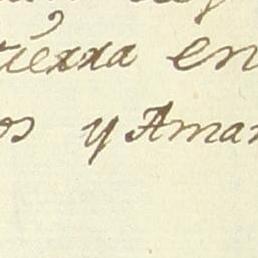 tierra en
os y Aman